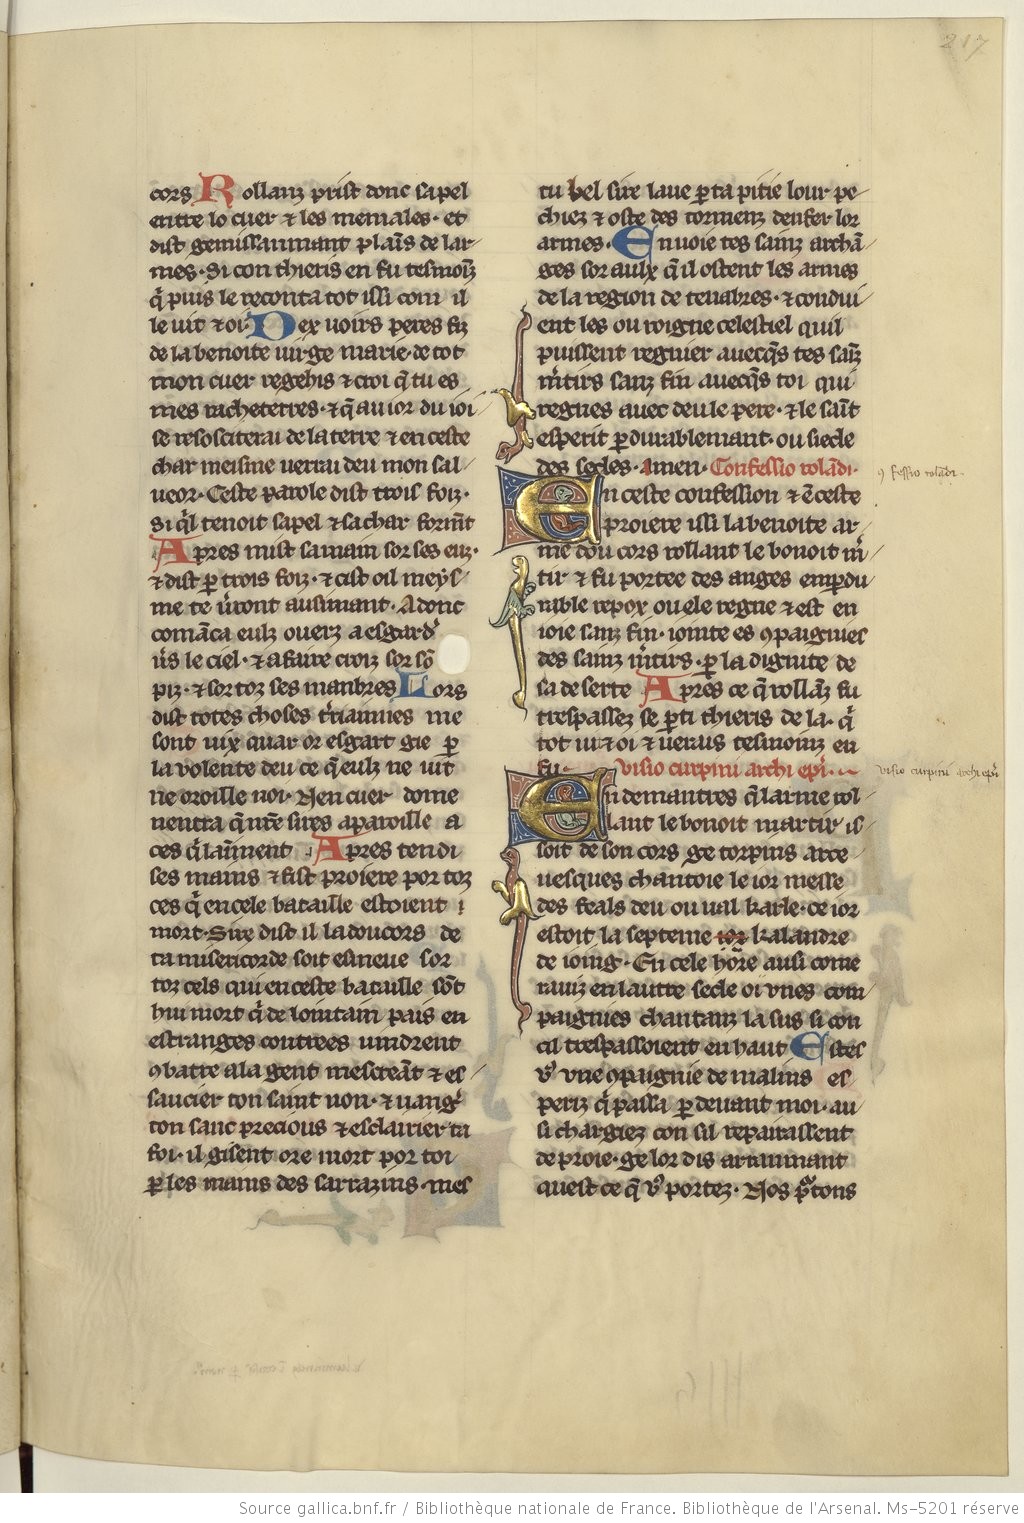 217
cors Rollanz prist donc sa pel
entre lo cuer ⁊ les memales · et
dist gemissanmant p̱ lai᷑s de lar-
mes · Si con thieris en fu tesmoi᷑z
q̃ puis le reconta tot issi com il
le vit ⁊ oi · Dex voirs peres fiz
de la benoite virge marie · de tot
mon cuer regehis ⁊ croi q̃ tu es
mes racheterres · ⁊ q̃ au ior du ioi
se resosciterai de la terre ⁊ en ceste
char meisme verrai deu mon sal-
veor · Ceste parole dist trois foiz ·
Si q̃l tenoit sa pel ⁊ sa char formt̃
Apres mist sa main sor ses euz ·
⁊ dist p̱ trois foiz · ⁊ cist oil meys-
me te v̾ront ausimant · Adonc
comãca eulz ouerz a esgard̾
v̾s le ciel · ⁊ a faire croiz sor sõ
piz · ⁊ sor toz ses manbres Lors
dist totes choses t̾riannies me
sont vix quar or esgart gie p̱
la volente deu ce q̃ eulz ne vit
ne oroille noi · Nen cuer dome
nentra q̃ nr̃e sires aparoille a
ces q̃ laim̃ent · Apres tendi
ses mains ⁊ fist proiere por toz
ces q̃ en cele bataille estoient
mort · Sire dist il la doucors de
ta misericorde soit esmeue sor
toz cels qui en ceste bataille sõt
hui mort q̃ de lointain pais en
estranges contrees vindrent
9batre a la gent mescreãt ⁊ es-
saucier ton saint non · ⁊ vang̾
ton sanc precious ⁊ esclairier ta
foi · il gisent ore mort por toi
p̱ les mains des sarrazins · mes
tu bel sire laue p̱ ta pitie lour pe-
chiez ⁊ oste des tormenz denfer lor
armes · Enuoie tes sainz archã-
ges sor aulx q̃ il ostent les armes
de la region de tenabres · ⁊ condui-
ent les ou roigne celestiel quil
puissent regnier auecq̃s tes saĩz
m̾tirs sanz fin auecq̃s toi qui
regnes auec deu le pere · ⁊ le saĩt
esperit p̱durablemant · ou siecle
des secles · amen · Confessio rolãdi ·
En ceste confession ⁊ ẽ ceste
proiere issi la benoite ar-
me dou cors rollant le bonoit m̾-
tir ⁊ fu portee des anges emp̱du-
rable repox ou ele regne ⁊ est en
ioie sanz fin · iointe es 9paignies
des sainz m̾tirs · p̱ la dignite de
sa deserte Apres ce q̃ rollãz fu
trespassez se p̱ti thieris de la · q̃
tot vit ⁊ oi ⁊ verais tesmoinz en
fu · Visio turpini archi epĩ ·
Endemantres q̃ larme rol-
lant le bonoit martir is-
soit de son cors ge torpins arce-
uesques chantoie le ior messe
des feals deu ou val karle · ce ior
estoit la septeme ior kalandre
de ioing · En cele hore ausi come
rauiz en lautre secle oi vnes com-
paignies chantanz la sus si con
cil trespassoient en haut Estes
v⁹ vne 9paignie de malins es-
periz q̃ passa p̱ deuant moi · au-
si chargiez con sil repairassent
de proie · ge lor dis artaumant
quest ce q̃ v⁹ portez · Nos p̃tons
9fessio rolãdi ·
Visio turpini archi epĩ
Source gallica.bnf.fr / Bibliothèque nationale de France. Bibliothèque de l'Arsenal. Ms-5201 réserve